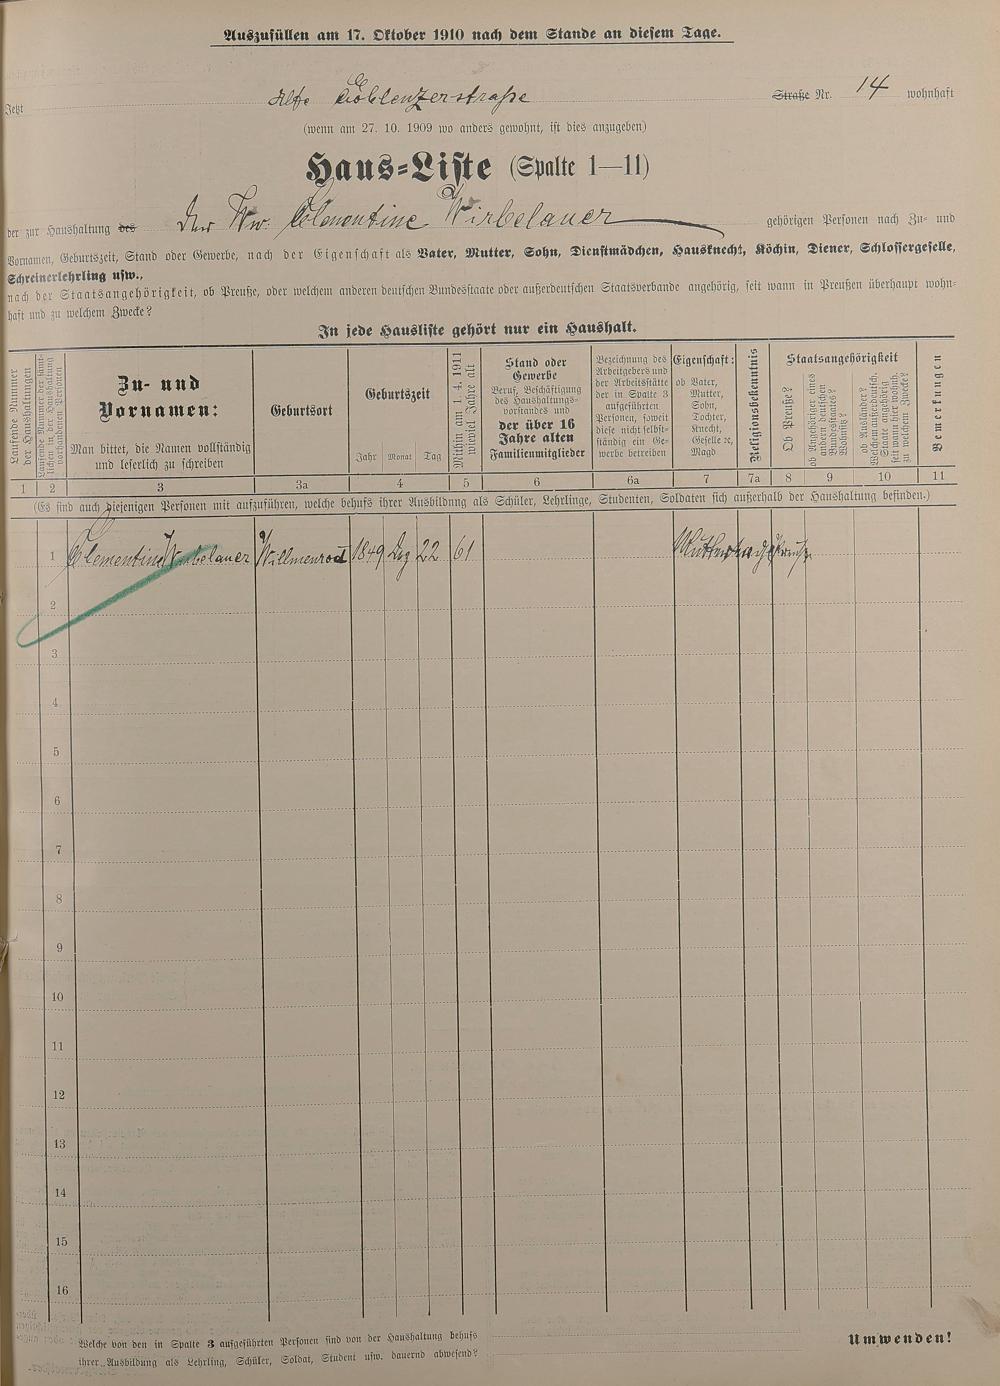 Auszufüllen am 17. Oktober 1910 nach dem Stande an diesem Tage.
Jetzt Alte Coblenzerstraße Straße Nr. 14 wohnhaft
(wenn am 27. 10. 1909 wo anders gewohnt, ist dies anzugeben)
Haus-Liste (Spalte 1—11)
der zur Haushaltung des Der Ww. Clementine Wirbelauer gehörigen Personen nach Zu- und
Vornamen, Geburtszeit, Stand oder Gewerbe, nach der Eigenschaft als Vater, Mutter, Sohn, Dienstmädchen, Hausknecht, Köchin, Diener, Schlossergeselle,
Schreinerlehrling usw.,
nach der Staatsangehörigkeit, ob Preuße, oder welchem anderen deutschen Bundesstaate oder außerdeutschen Staatsverbande angehörig, seit wann in Preußen überhaupt wohn-
haft und zu welchem Zwecke?
In jede Hausliste gehört nur ein Haushalt.
Laufende Nummer
der Haushaltungen
Laufende Nummer der sämt-
lichen in der Haushaltung
vorhandenen Personen
Zu- und
Vornamen:
Man bittet, die Namen vollständig
und leserlich zu schreiben
Geburtsort
Geburtszeit
Jahr Monat Tag
Mithin am 1. 4. 1911
wieviel Jahre alt
Stand oder
Gewerbe
Beruf, Beschäftigung
des Haushaltungs-
vorstandes und
der über 16
Jahre alten
Familienmitglieder
Bezeichnung des
Arbeitgebers und
der Arbeitsstätte
der in Spalte 3
aufgeführten
Personen, soweit
diese nicht selbst-
ständig ein Ge-
werbe betreiben
Eigenschaft:
ob Vater,
Mutter,
Sohn,
Tochter,
Knecht,
Geselle ꝛc,
Magd
Religionsbekenntnis
Staatsangehörigkeit
Ob Preuße?
ob Angehöriger eines
andern deutschen
Bundesstaates?
Wohnsitz?
ob Ausländer?
Welchem außerdeutsch.
Staate angehörig
seit wann hier wohnh.
zu welchem Zwecke?
Bemerkungen
1 2 3 3a 4 5 6 6a 7 7a 8 9 10 11
(Es sind auch diejenigen Personen mit aufzuführen, welche behufs ihrer Ausbildung als Schüler, Lehrlinge, Studenten, Soldaten sich außerhalb der Haushaltung befinden.)
1 Clementine Wirbelauer Willmenrod 1849 Dez 22 61 Mutter
2
3
4
5
6
7
8
9
10
11
12
13
14
15
16
Welche von den in Spalte 3 aufgeführten Personen sind von der Haushaltung behufs
ihrer Ausbildung als Lehrling, Schüler, Soldat, Student usw. dauernd abwesend?
Umwenden!